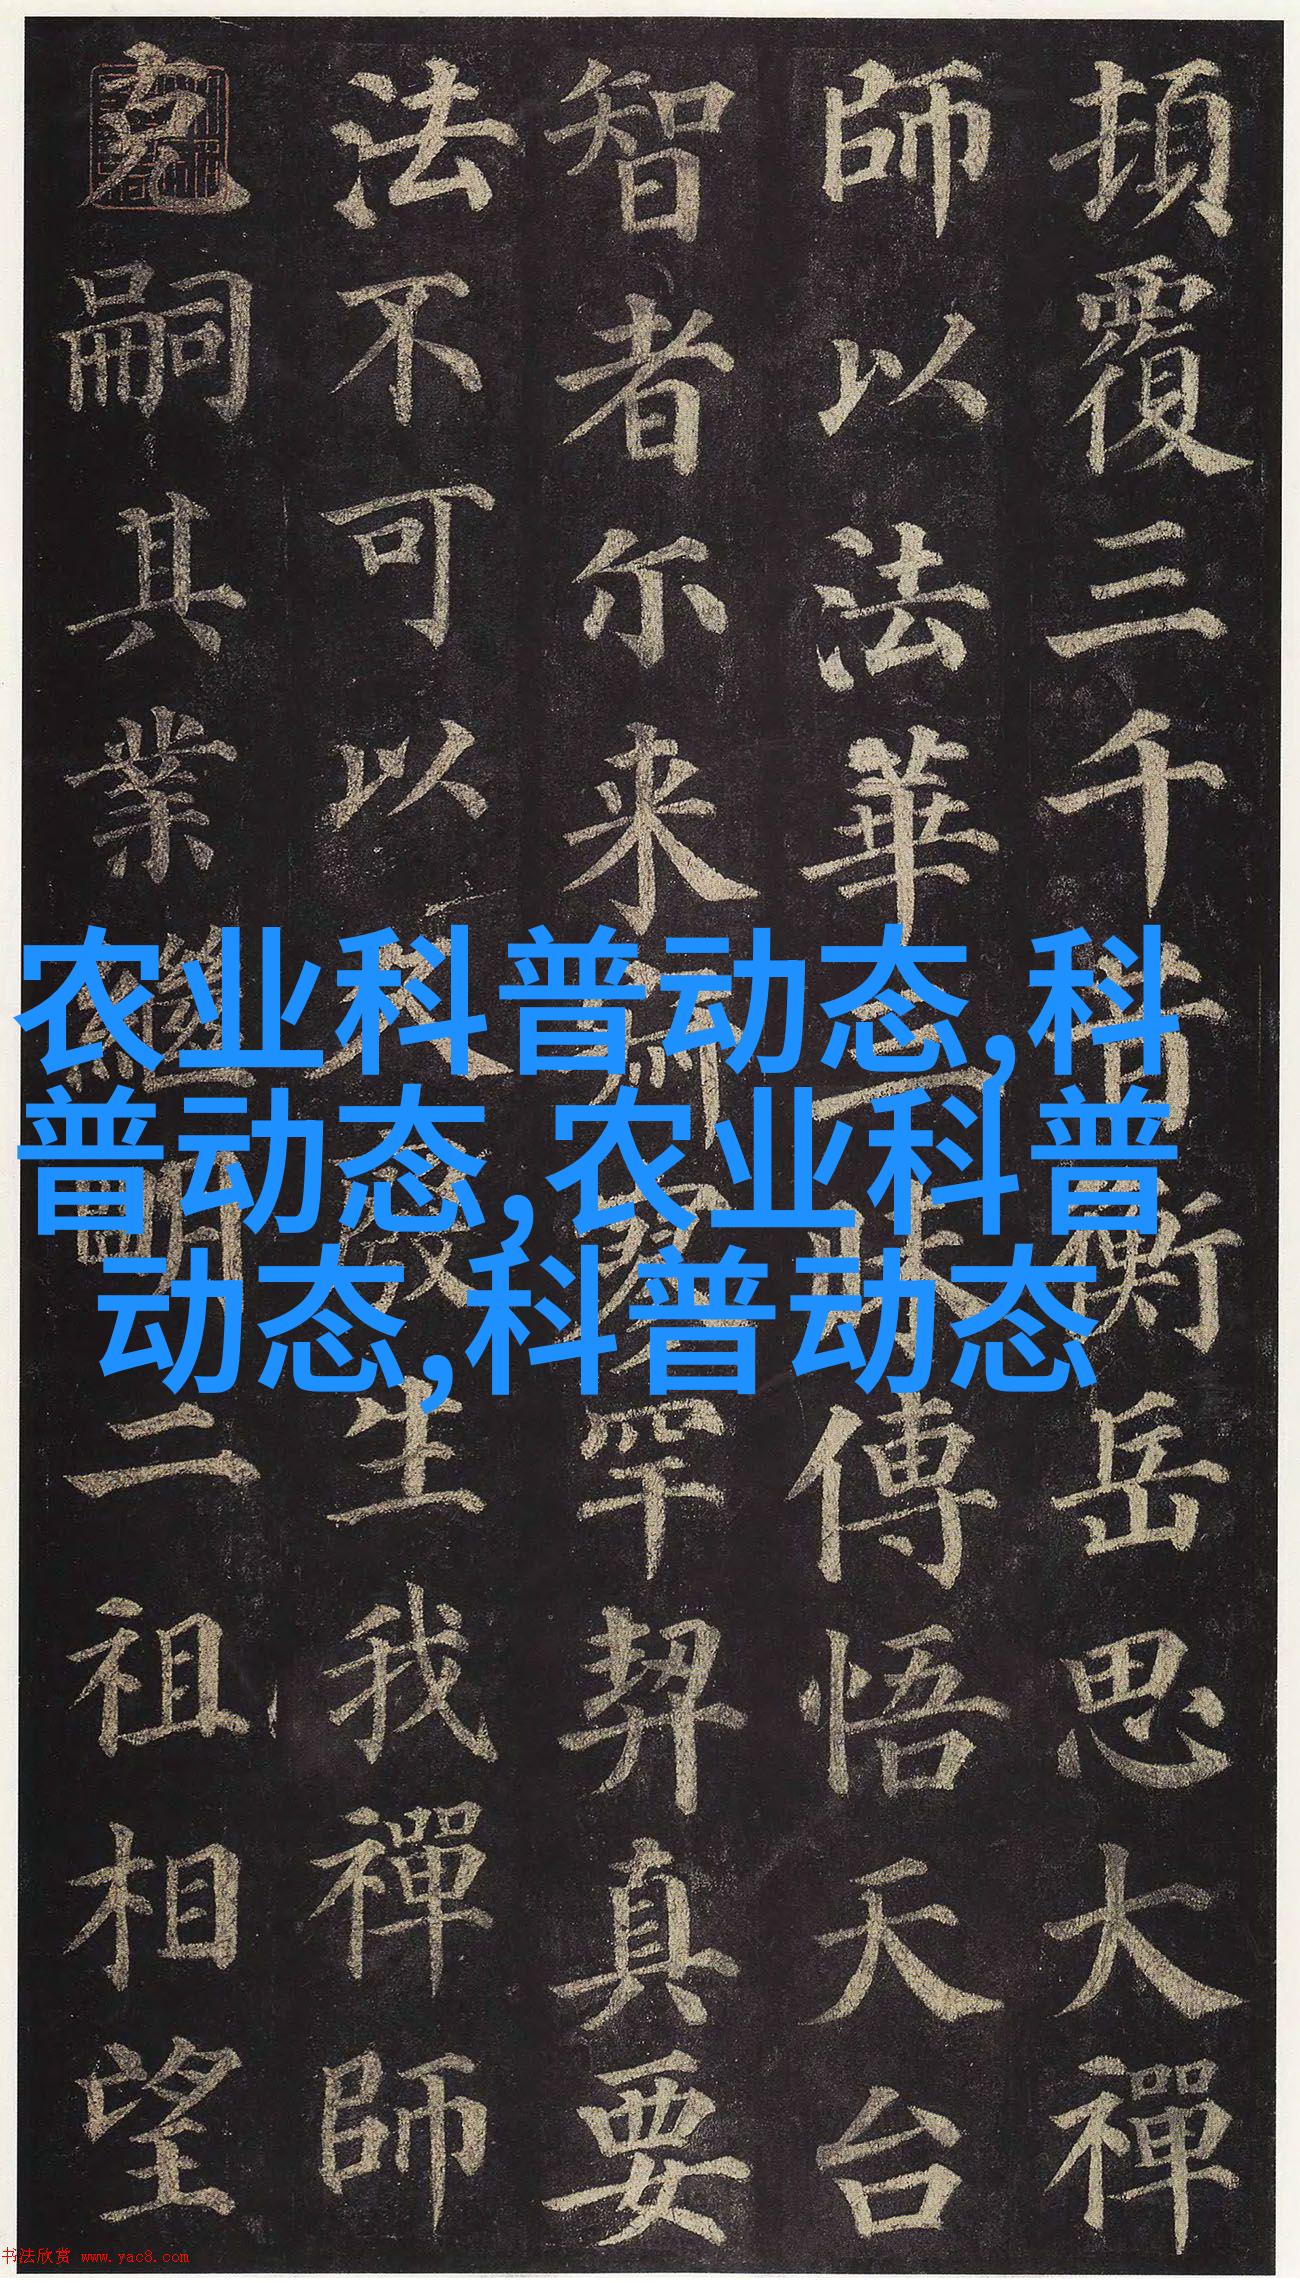 頂覆三千昔衡岳思大禪
師以法華三昧傳悟天台
智者尔来寂寥罕契真要
法不可以久廢生我禪師
克嗣其業繼明二祖相望
农业科普动态,科
普动态,农业科普
动态,科普动态
书法欣赏 www.yac8.com